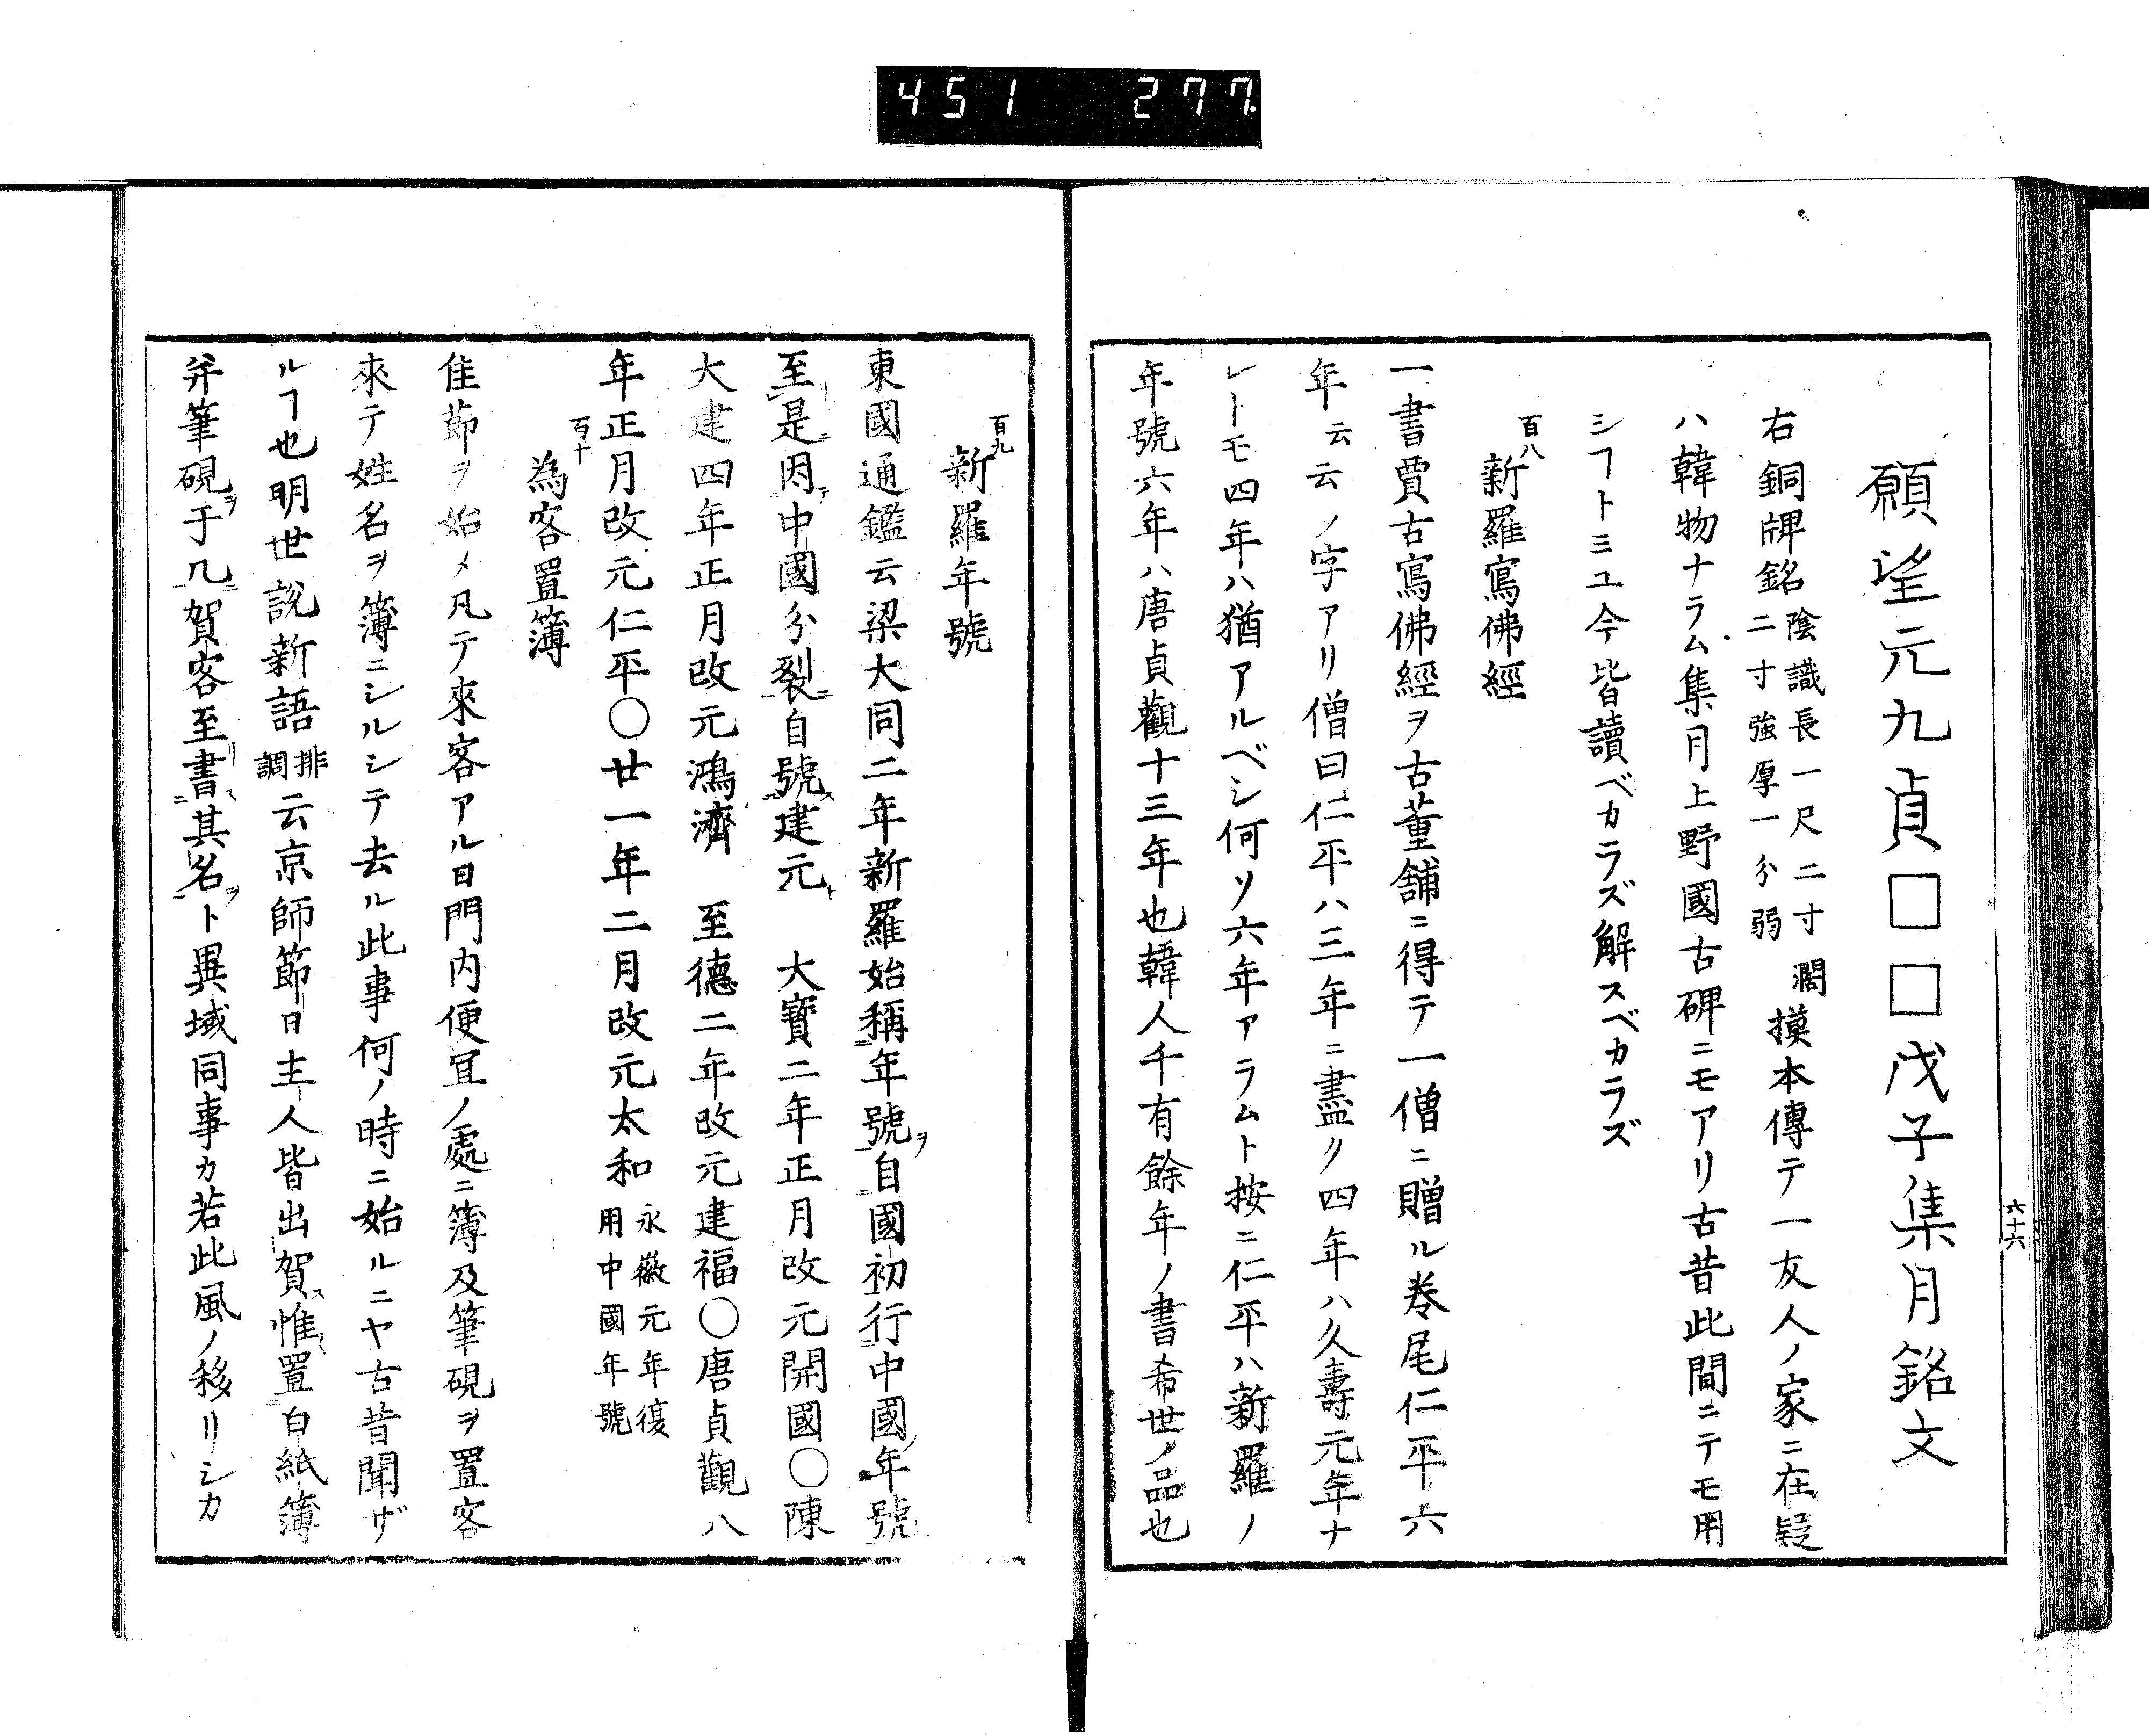 451 277
六十六
願望元九貞□□戊子集月銘文
右銅牌銘陰識長一尺二寸濶二寸強厚一分弱摸本傳テ一友人ノ家ニ在疑
ハ韓物ナラム集月上野國古碑ニモアリ古昔此間ニテモ用
シヿトミユ今皆讀ベカラズ解スベカラズ
百八
新羅寫佛經
一書賈古寫佛經ヲ古董舗ニ得テ一僧ニ贈ル卷尾仁平六
年云云ノ字アリ僧曰仁平ハ三年ニ盡ク四年ハ久壽元年ナ
レトモ四年ハ猶アルベシ何ソ六年アラムト按ニ仁平ハ新羅ノ
年號六年ハ唐貞觀十三年也韓人千有餘年ノ書希世ノ品也
百九
新羅年號
東國通鑑云梁大同二年新羅始稱年號ヲ自國初行中國ノ年號
至是因テ中國分裂自號ス建元ト 大寶二年正月改元開國○陳
大建四年正月改元鴻濟 至德二年改元建福○唐貞觀八
年正月改元仁平○廿一年二月改元太和永徽元年復用中國年號
百十
為客置簿
佳節ヲ始メ凡テ來客アル日門内便宜ノ處ニ簿及筆硯ヲ置客
來テ姓名ヲ簿ニシルシテ去ル此事何ノ時ニ始ルニヤ古昔聞ザ
ルヿ也明世説新語排調云京師節日主人皆出賀ス惟置白紙簿
并筆硯ヲ于几賀客至リ書ス其名ヲト異域同事カ若此風ノ移リシカ